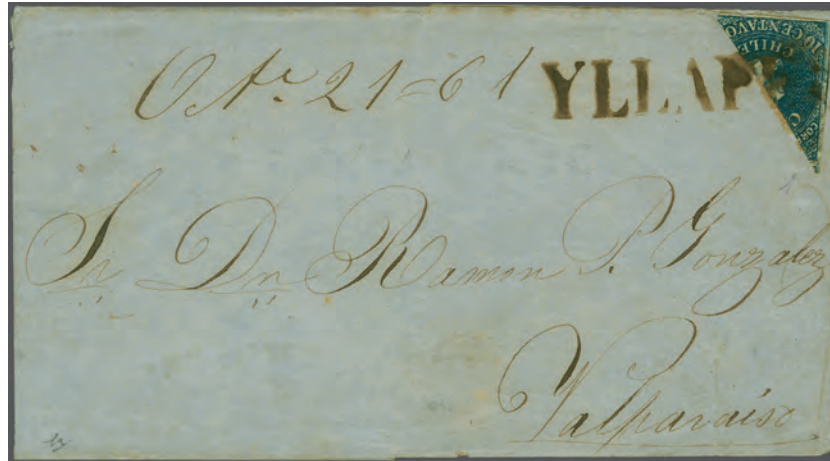 Oте 21=61
YLLAPE
10 CENTAVO
CHILE
CO
COR
Sr Dn Ramon P. Gonzalez
Valparaiso